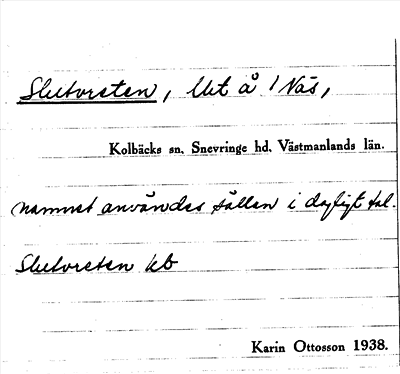 Slutvreten, Ut å 1 Näs,
Kolbäcks sn. Snevringe hd. Västmanlands län.
namnet användes sällan i dagligt tal.
Slutvreten kb
Karin Ottosson 1938.